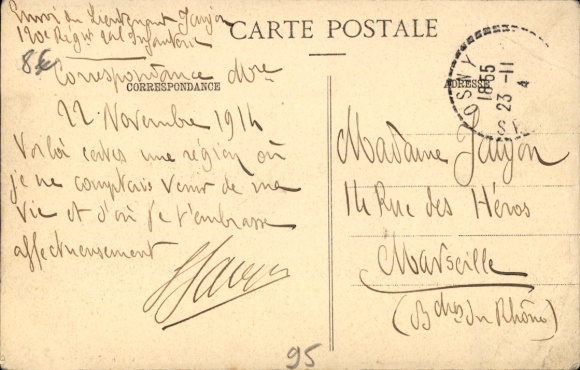 Envoi du Lieutenant Jaujon
120e Régt Infanterie
86
CARTE POSTALE
Correspondance Mre
CORRESPONDANCE
ADRESSE
OSNY
18 55
23 -11
4
22 Novembre 1914
Voilà certes une région où
je ne comptais venir de ma
vie et d'où je t'embrasse
affectueusement
Madame Jaujon
14 Rue des Héros
Marseille
(Bches du Rhône)
95